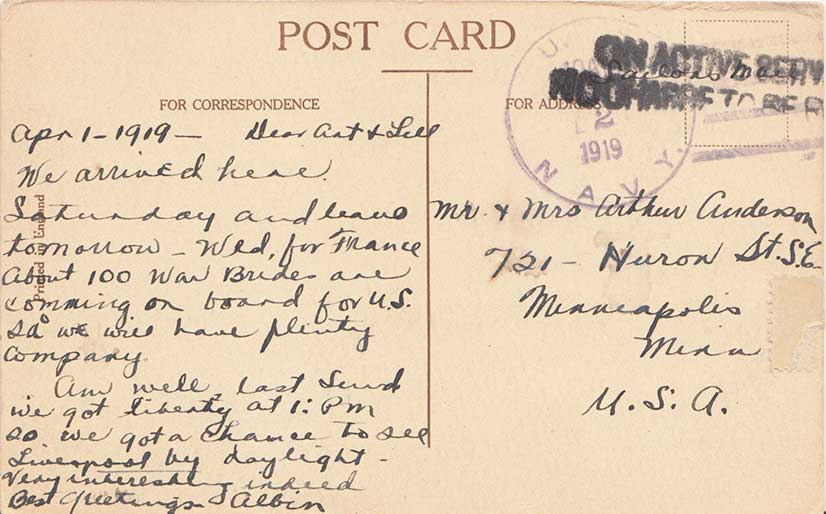 POST CARD
FOR CORRESPONDENCE
Apr 1-1919- Dear Art & Lill
We arrived here.
Saturday and leave
tomorrow - Wed, for France
About 100 War Brides are
comming on board for U.S.
so we will have plenty
company
Am well, last Sund
we got liberty at 1: PM
so we got a chance to see
Liverpool by daylight -
Very interesting indeed
Best greetings Albin
Printed in England
FOR ADDRESS
Sailors Mail
ON ACTIVE SERV
NO CHARGE TO BE R
U.
2
1919
NAVY.
Mr & Mrs Arthur Anderson
721 - Huron St. S.E.
Minneapolis
Minn
U. S. A.